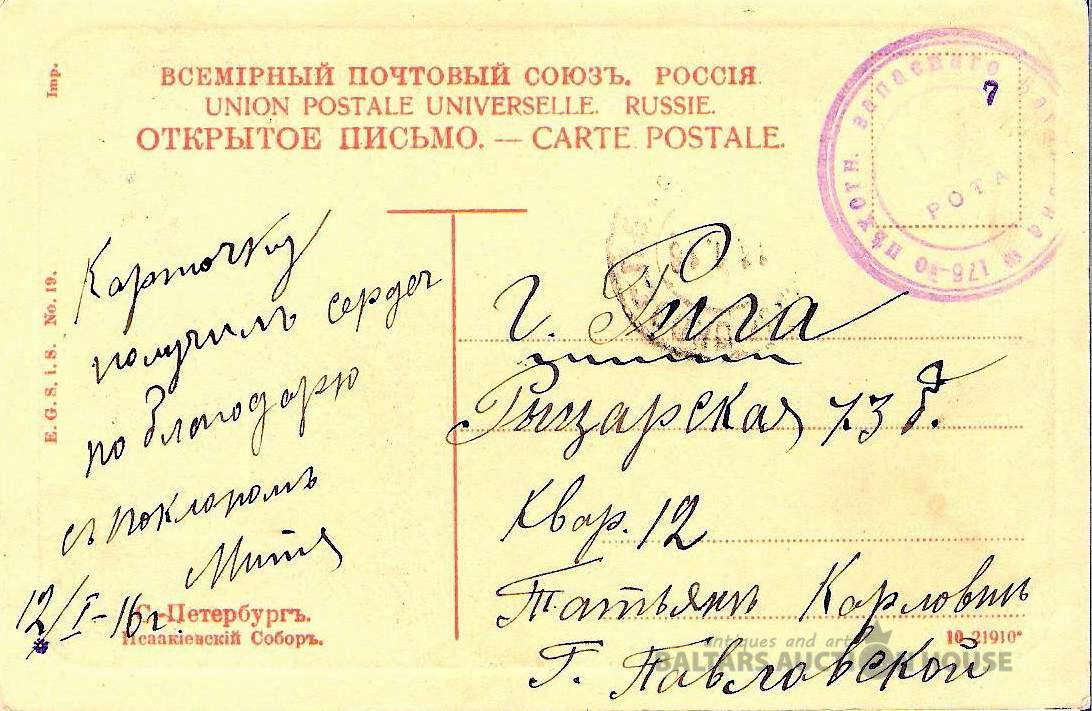 ВСЕМІРНЫЙ ПОЧТОВЫЙ СОЮЗЪ. РОССІЯ.
UNION POSTALE UNIVERSELLE. RUSSIE.
ОТКРЫТОЕ ПИСЬМО. — CARTE POSTALE.
Imp.
E. G. S. i. S. No. 19.
7
РОТА
176-го ПѢХОТН. запаснаго
Карточку
получилъ сердеч
но благодарю
съ поклономъ
Митя
12/I-16 г.
С.-Петербургъ.
Исаакіевскій Соборъ.
г. Рига
Рыцарская 73 б.
Квар. 12
Татьянѣ Карловнѣ
Г. Павловской
10 21910*
antiques and art
BALTARS AUCTION HOUSE